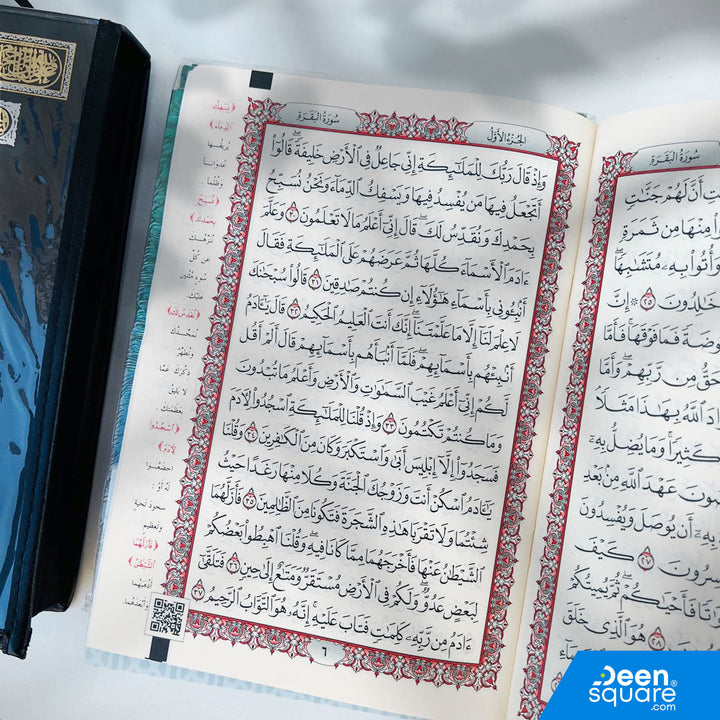 سُورَةُ البَقَرَةِ
الجُزْءُ الأَوَّلُ
وَإِذْ قَالَ رَبُّكَ لِلْمَلَٰٓئِكَةِ إِنِّى جَاعِلٌ فِى ٱلْأَرْضِ خَلِيفَةً ۖ قَالُوٓا۟
أَتَجْعَلُ فِيهَا مَن يُفْسِدُ فِيهَا وَيَسْفِكُ ٱلدِّمَآءَ وَنَحْنُ نُسَبِّحُ
بِحَمْدِكَ وَنُقَدِّسُ لَكَ ۖ قَالَ إِنِّىٓ أَعْلَمُ مَا لَا تَعْلَمُونَ ٣٠ وَعَلَّمَ
ءَادَمَ ٱلْأَسْمَآءَ كُلَّهَا ثُمَّ عَرَضَهُمْ عَلَى ٱلْمَلَٰٓئِكَةِ فَقَالَ
أَنۢبِـُٔونِى بِأَسْمَآءِ هَٰٓؤُلَآءِ إِن كُنتُمْ صَٰدِقِينَ ٣١ قَالُوا۟ سُبْحَٰنَكَ
لَا عِلْمَ لَنَآ إِلَّا مَا عَلَّمْتَنَآ ۖ إِنَّكَ أَنتَ ٱلْعَلِيمُ ٱلْحَكِيمُ ٣٢ قَالَ يَٰٓـَٔادَمُ
أَنۢبِئْهُم بِأَسْمَآئِهِمْ ۖ فَلَمَّآ أَنۢبَأَهُم بِأَسْمَآئِهِمْ قَالَ أَلَمْ أَقُل
لَّكُمْ إِنِّىٓ أَعْلَمُ غَيْبَ ٱلسَّمَٰوَٰتِ وَٱلْأَرْضِ وَأَعْلَمُ مَا تُبْدُونَ
وَمَا كُنتُمْ تَكْتُمُونَ ٣٣ وَإِذْ قُلْنَا لِلْمَلَٰٓئِكَةِ ٱسْجُدُوا۟ لِءَادَمَ
فَسَجَدُوٓا۟ إِلَّآ إِبْلِيسَ أَبَىٰ وَٱسْتَكْبَرَ وَكَانَ مِنَ ٱلْكَٰفِرِينَ ٣٤ وَقُلْنَا
يَٰٓـَٔادَمُ ٱسْكُنْ أَنتَ وَزَوْجُكَ ٱلْجَنَّةَ وَكُلَا مِنْهَا رَغَدًا حَيْثُ
شِئْتُمَا وَلَا تَقْرَبَا هَٰذِهِ ٱلشَّجَرَةَ فَتَكُونَا مِنَ ٱلظَّٰلِمِينَ ٣٥ فَأَزَلَّهُمَا
ٱلشَّيْطَٰنُ عَنْهَا فَأَخْرَجَهُمَا مِمَّا كَانَا فِيهِ ۖ وَقُلْنَا ٱهْبِطُوا۟ بَعْضُكُمْ
لِبَعْضٍ عَدُوٌّ ۖ وَلَكُمْ فِى ٱلْأَرْضِ مُسْتَقَرٌّ وَمَتَٰعٌ إِلَىٰ حِينٍ ٣٦ فَتَلَقَّىٰٓ
ءَادَمُ مِن رَّبِّهِۦ كَلِمَٰتٍ فَتَابَ عَلَيْهِ ۚ إِنَّهُۥ هُوَ ٱلتَّوَّابُ ٱلرَّحِيمُ ٣٧
٦
﴿وَيَسْفِكُ
ٱلدِّمَآءَ﴾
يُريقُها
عُدوانًا
وظُلمًا.
﴿نُسَبِّحُ
بِحَمْدِكَ﴾
نُنَزِّهُكَ
عن كُلِّ
سُوءٍ مُثنِينَ
عَلَيْكَ.
﴿نُقَدِّسُ لَكَ﴾
نُمَجِّدُكَ
ونُطَهِّرُ
ذِكْرَكَ عَمَّا
لا يَلِيقُ
بِعَظَمَتِكَ.
﴿ٱسْجُدُوا۟
لِءَادَمَ﴾
اخضَعُوا
لَهُ أَوْ
سُجُودَ تَحِيَّةٍ
وتَعظِيمٍ
﴿فَأَزَلَّهُمَا
ٱلشَّيْطَٰنُ﴾
أَذْهَبَهُمَا
وأَبْعَدَهُمَا.
سُورَةُ البَقَرَةِ
أَنَّ لَهُمْ جَنَّٰتٍ
مِنْهَا مِن ثَمَرَةٍ
وَأُتُوا۟ بِهِۦ مُتَشَٰبِهًا
خَٰلِدُونَ ٢٥ ۞ إِنَّ
فَمَا فَوْقَهَا ۚ فَأَمَّا
مِن رَّبِّهِمْ ۖ وَأَمَّا
ٱللَّهُ بِهَٰذَا مَثَلًا
كَثِيرًا ۚ وَمَا يُضِلُّ بِهِۦٓ
عَهْدَ ٱللَّهِ مِنۢ بَعْدِ
بِهِۦٓ أَن يُوصَلَ وَيُفْسِدُونَ
٢٧ كَيْفَ
فَأَحْيَٰكُمْ ۖ ثُمَّ يُمِيتُكُمْ
٢٨ هُوَ ٱلَّذِى خَلَقَ
Deen
square®
.com